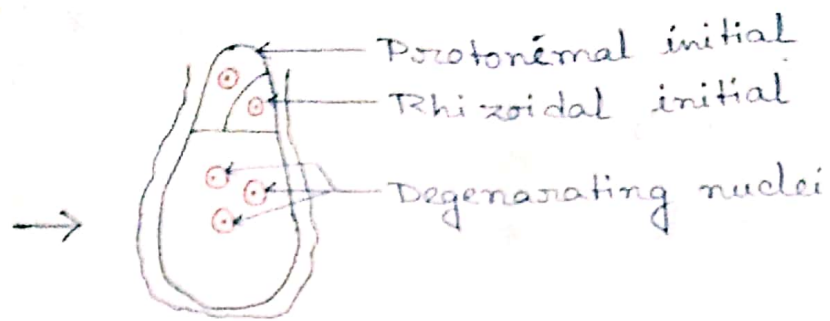 Protonemal initial
Rhizoidal initial
Degenarating nuclei